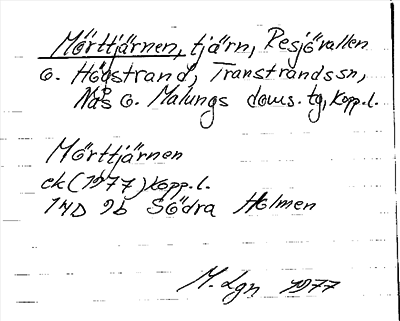 Mörttjärnen, tjärn, Resjövallen
o. Högstrand, Transtrandssn,
Nås o. Malungs doms. tg, Kopp.l.
Mörttjärnen
ek (1977) Kopp.l.
14D 9b Södra Holmen
M. Lgn 1977